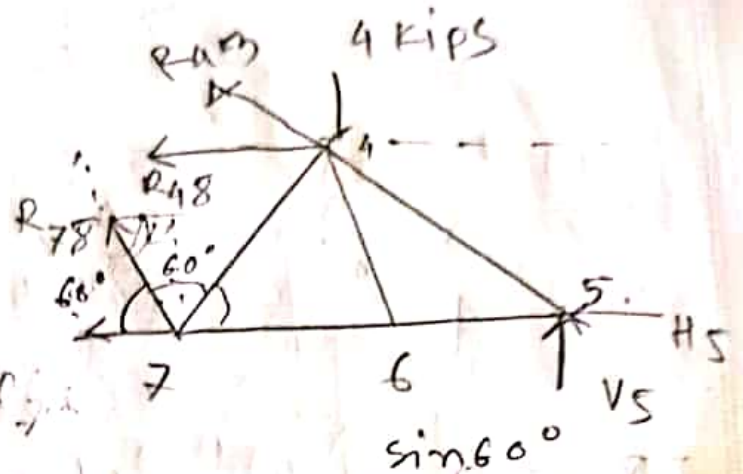 4 kips
R43
4
R48
R78
60°
60°
5
H5
7
6
V5
sin60°